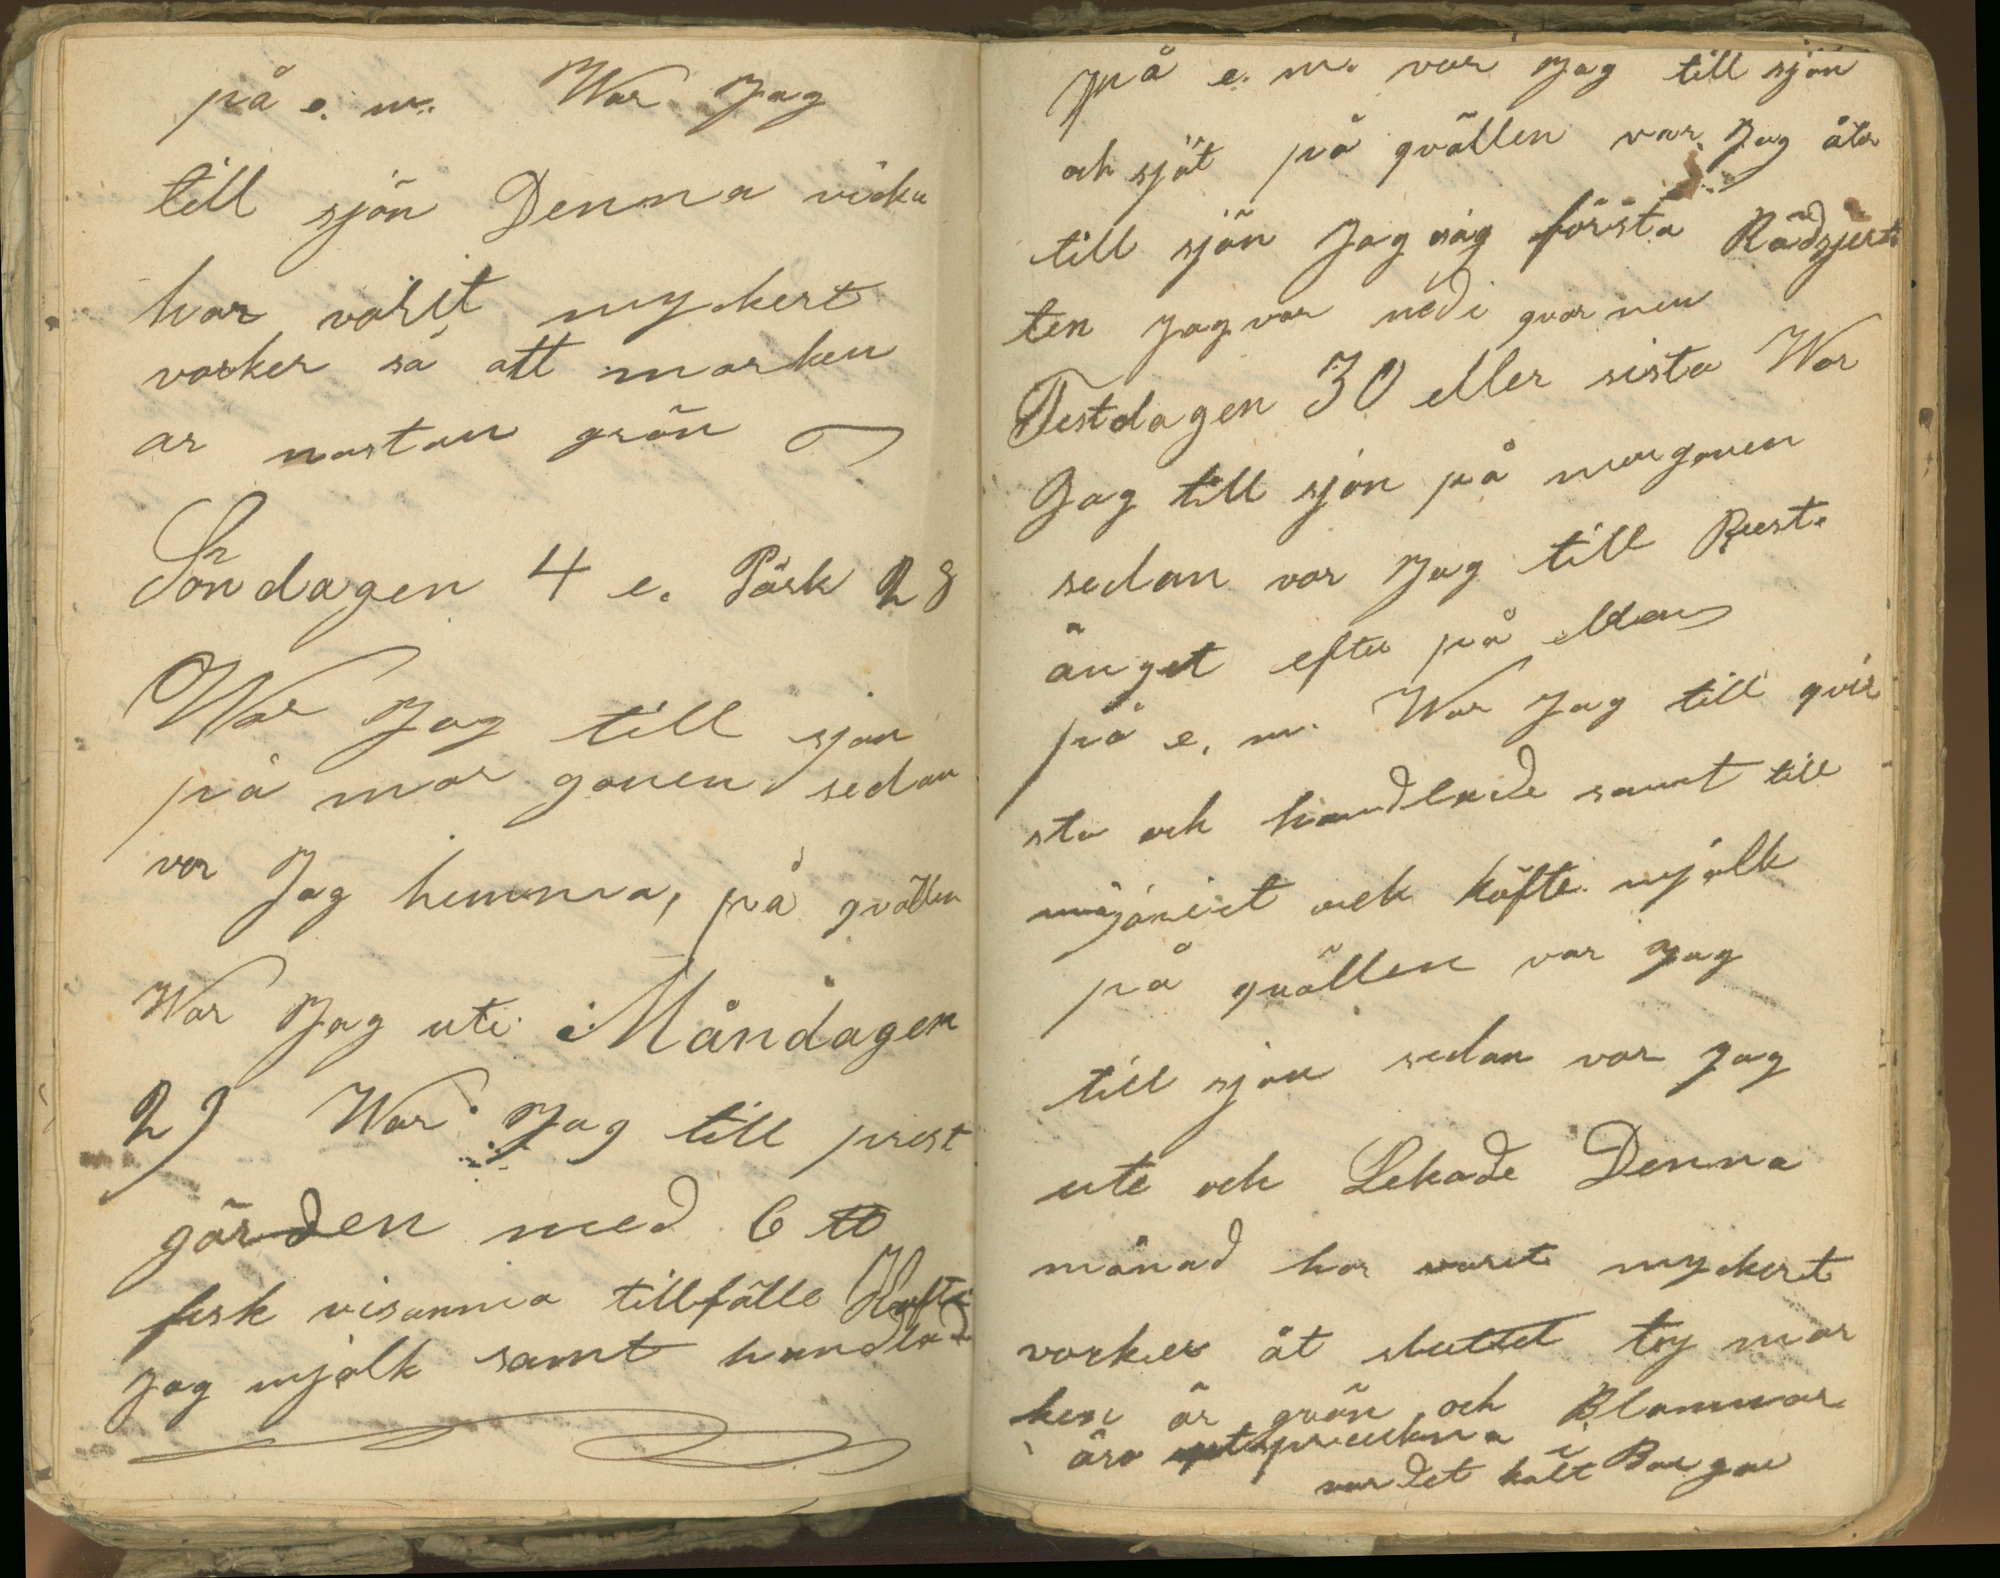 på e. m. War Jag
till sjön Denna vicka
har varit myckert
vacker så att marken
är nästan grön
Söndagen 4 e. Påsk 28
War Jag till sjön
på mor gonen sedan
var Jag hemma, på qvällen
War Jag ute. Måndagen
29 War Jag till prest
gården med 6 ℔
fisk visamma tillfälle Köfte
jag mjölk samt handlad
på e. m. var Jag till sjön
och sjöt på qvällen var Jag åter
till sjön Jag såg första Rödstjert
ten Jag var nedi qvarnen
Testdagen 30 eller sista War
Jag till sjön på morgonen
sedan var Jag till
änget efter på
på e. m. War Jag till qvis
sta och handlade samt till
och köfte mjölk
på qvällen var Jag
till sjön sedan var Jag
ute och Lekade Denna
månad har varit myckert
vacker åt sluttet ty mar
ken är grön och Blommor
äro utspruckna i
var det kalt Bar